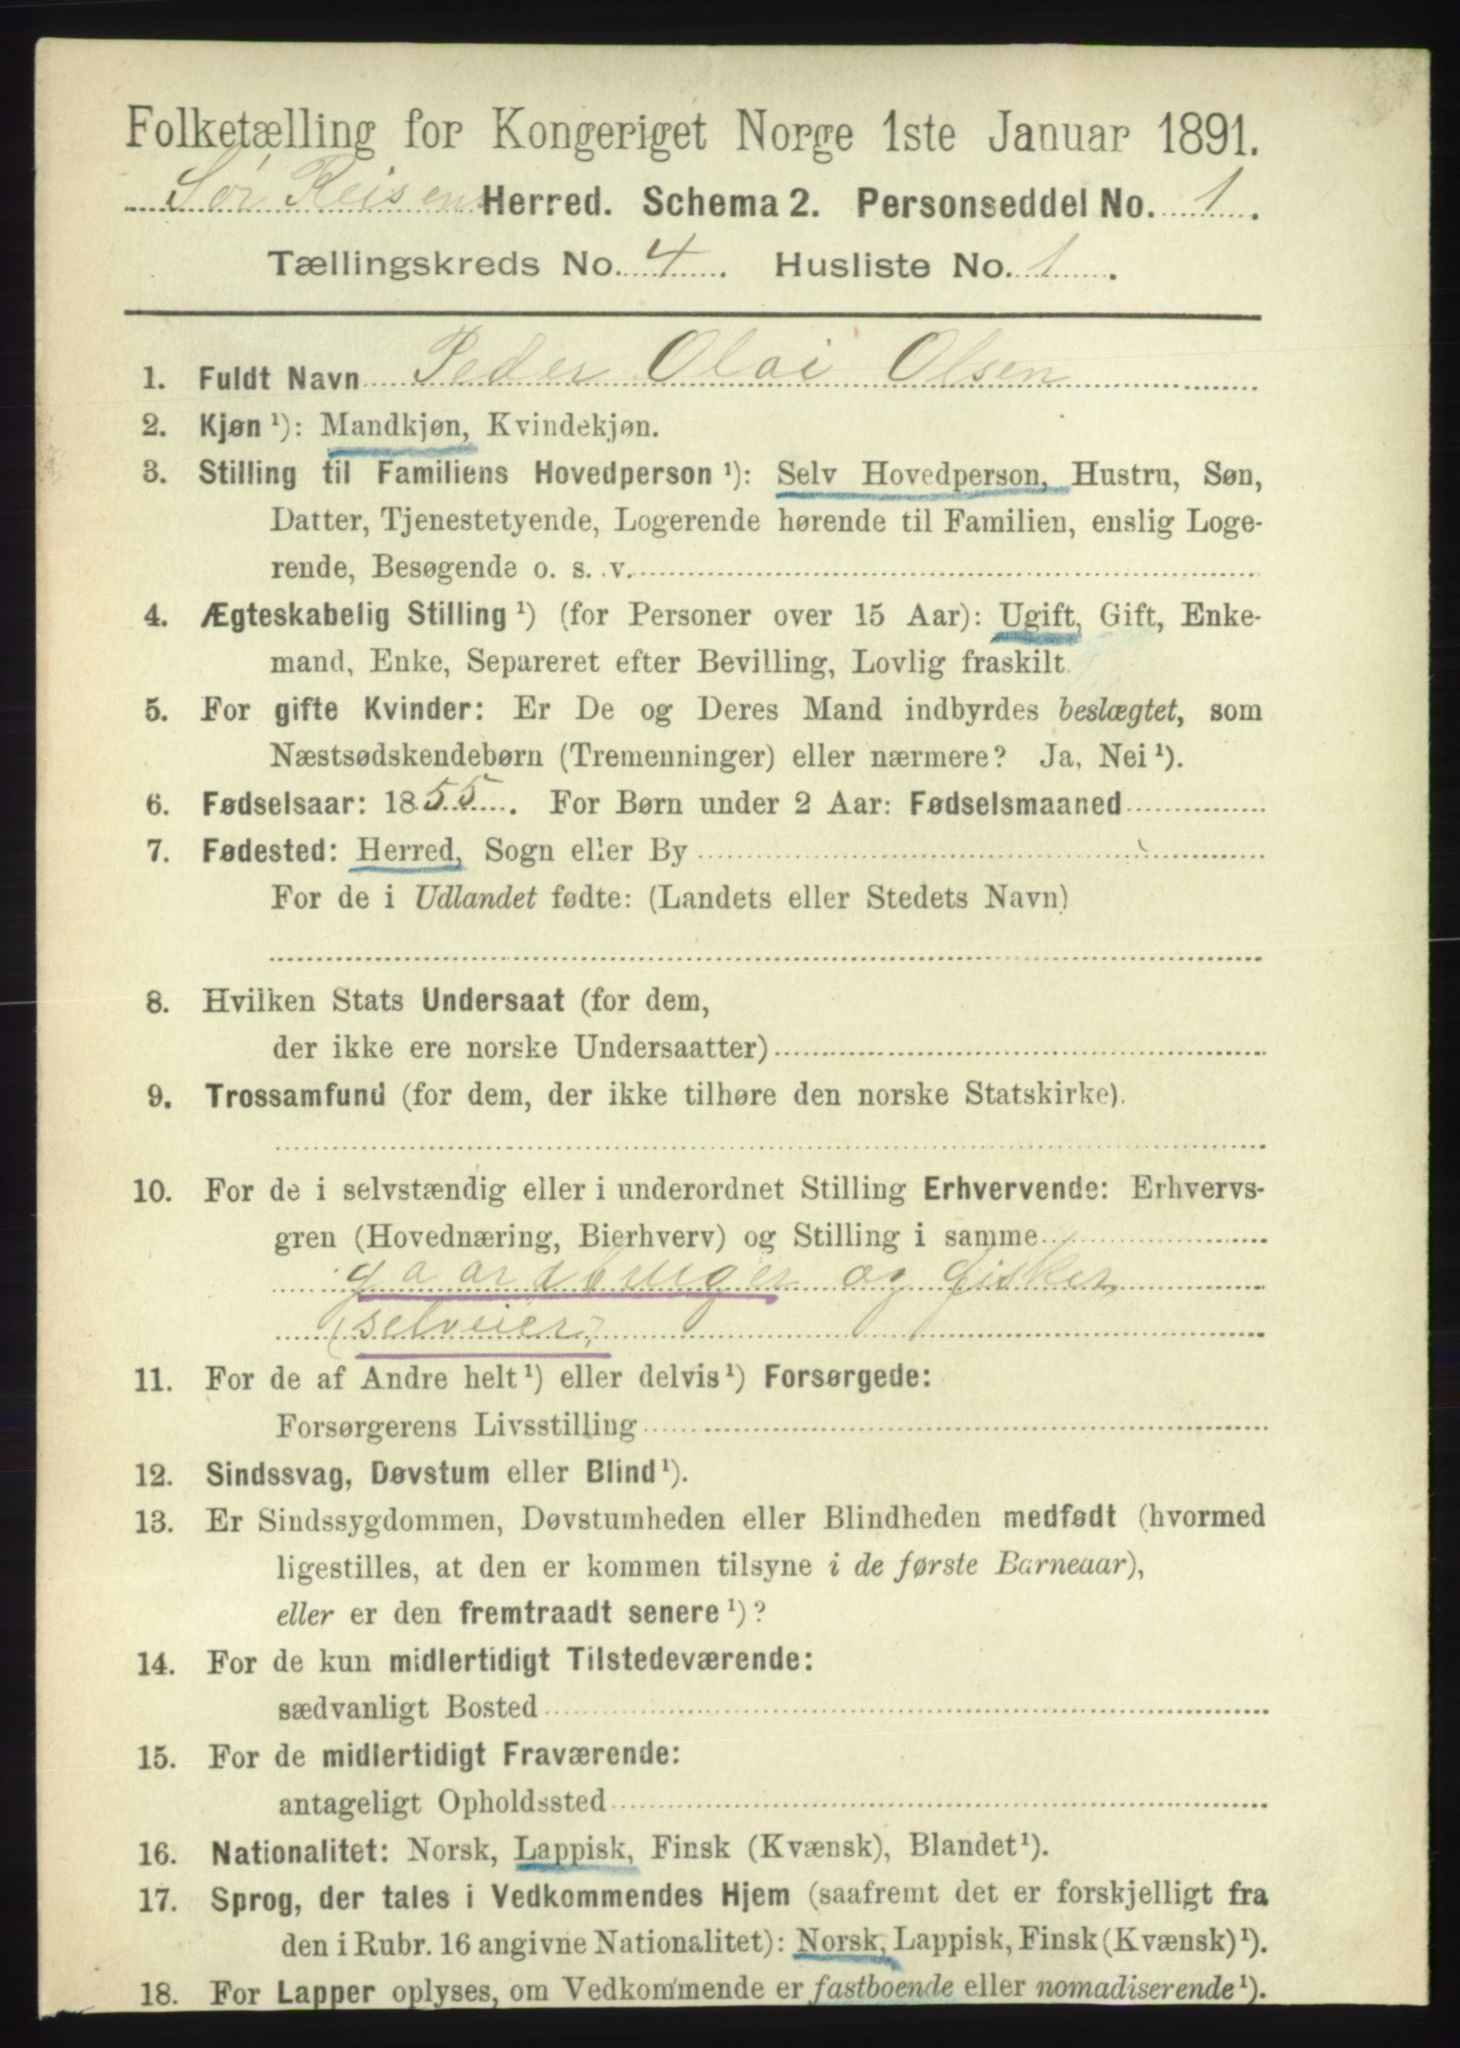 Folketælling for Kongeriget Norge 1ste Januar 1891.
Sør Reisens Herred. Schema 2. Personseddel No. 1.
Tællingskreds No. 4. Husliste No. 1.
1. Fuldt Navn Peder Olai Olsen
2. Kjøn ¹): Mandkjøn, Kvindekjøn.
3. Stilling til Familiens Hovedperson ¹): Selv Hovedperson, Hustru, Søn,
Datter, Tjenestetyende, Logerende hørende til Familien, enslig Loge-
rende, Besøgende o. s. v.
4. Ægteskabelig Stilling ¹) (for Personer over 15 Aar): Ugift, Gift, Enke-
mand, Enke, Separeret efter Bevilling, Lovlig fraskilt.
5. For gifte Kvinder: Er De og Deres Mand indbyrdes beslægtet, som
Næstsødskendebørn (Tremenninger) eller nærmere? Ja, Nei ¹).
6. Fødselsaar: 1855. For Børn under 2 Aar: Fødselsmaaned
7. Fødested: Herred, Sogn eller By
For de i Udlandet fødte: (Landets eller Stedets Navn)
8. Hvilken Stats Undersaat (for dem,
der ikke ere norske Undersaatter)
9. Trossamfund (for dem, der ikke tilhøre den norske Statskirke).
10. For de i selvstændig eller i underordnet Stilling Erhvervende: Erhvervs-
gren (Hovednæring, Bierhverv) og Stilling i samme
gaardbruger og fisker
(selveier)
11. For de af Andre helt ¹) eller delvis ¹) Forsørgede:
Forsørgerens Livsstilling
12. Sindssvag, Døvstum eller Blind ¹).
13. Er Sindssygdommen, Døvstumheden eller Blindheden medfødt (hvormed
ligestilles, at den er kommen tilsyne i de første Barneaar),
eller er den fremtraadt senere ¹)?
14. For de kun midlertidigt Tilstedeværende:
sædvanligt Bosted
15. For de midlertidigt Fraværende:
antageligt Opholdssted
16. Nationalitet: Norsk, Lappisk, Finsk (Kvænsk), Blandet ¹).
17. Sprog, der tales i Vedkommendes Hjem (saafremt det er forskjelligt fra
den i Rubr. 16 angivne Nationalitet): Norsk, Lappisk, Finsk (Kvænsk) ¹).
18. For Lapper oplyses, om Vedkommende er fastboende eller nomadiserende ¹).